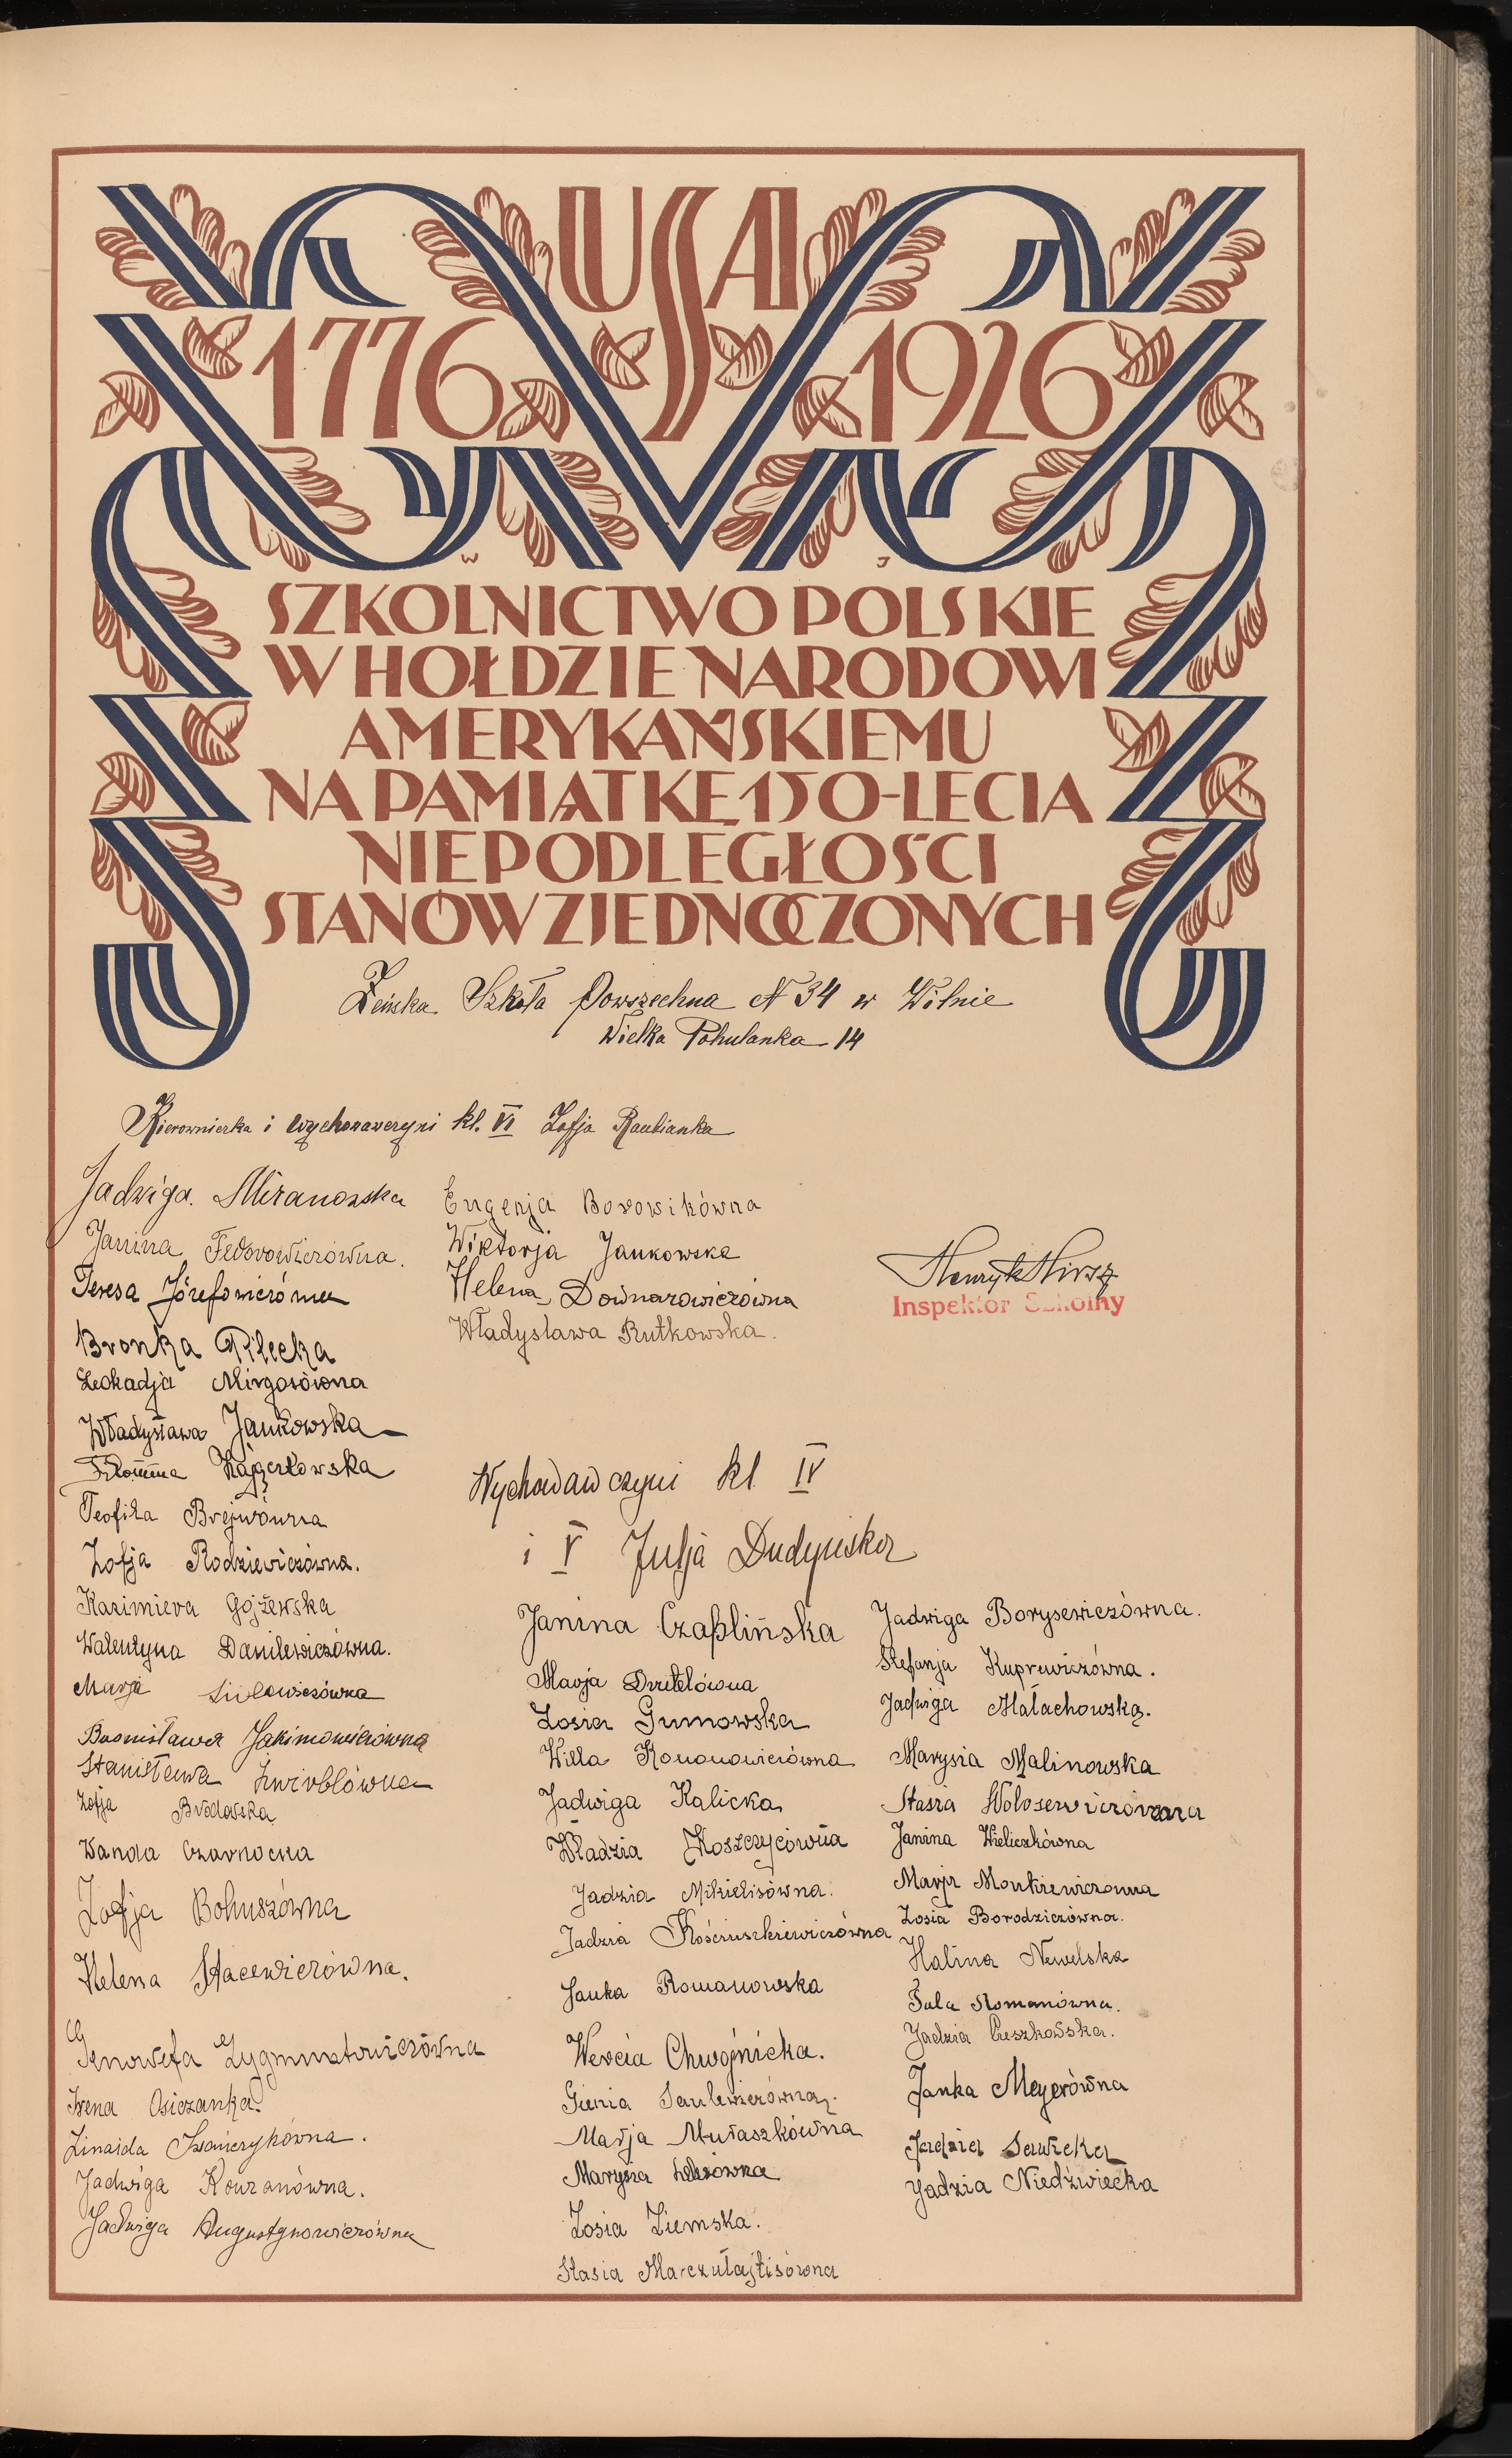 USA
1776 1926
W J
SZKOLNICTWO POLSKIE
W HOŁDZIE NARODOWI
AMERYKAŃSKIEMU
NA PAMIĄTKĘ 150-LECIA
NIEPODLEGŁOŚCI
STANÓW ZJEDNOCZONYCH
Żeńska Szkoła Powszechna N 34 w Wilnie
Wielka Pohulanka 14
Kierowniczka i wychowawczyni kl. VI Zofja Raubianka
Jadwiga Miranowska
Janina Fedorowiczówna.
Teresa Józefowiczówna
Bronka Pilecka
Leokadja Mirgosówna
Władysława Jankowska
Teofila Brejwówna
Zofja Rodziewiczówna.
Kazimiera Gojżewska
Walentyna Danilewiczówna.
Marja
Bronisława Jakimowiczówna
Stanisława Żwirblówna
Zofja Brodowska
Wanda Czarnocka
Zofja Bohuszówna
Helena Stacewiczówna.
Genowefa Zygmuntowiczówna
Irena Osiczanka
Zinaida Iwańczykówna.
Jadwiga Kowzanówna.
Jadwiga Augustynowiczówna
Eugenja Borowikówna
Wiktorja Jankowska
Helena Downarowiczówna
Władysława Rutkowska.
Henryk Hirsz
Inspektor Szkolny
Wychowawczyni kl IV
i V Julja Dudyńska
Janina Czaplińska
Marja Drutelówna
Zosia Gumowska
Willa Kononowiczówna
Jadwiga Kalicka
Władzia Koszczycówna
Jadzia Mikielisówna.
Jadzia Kościuszkiewiczówna
Janka Romanowska
Wercia Chwojnicka.
Gienia Saulewiczówna.
Marja Muraszkówna
Marysia
Zosia Ziemska.
Stasia Marczułajtisówna
Jadwiga Borysewiczówna.
Stefanja Kuprewiczówna.
Jadwiga Małachowska.
Marysia Malinowska
Stasia Wołosewiczówna
Janina Wieliczkówna
Marja Monkiewiczówna
Zosia Borodziczówna.
Halina Newelska
Tula Romanówna.
Jadzia Cieszkowska.
Janka Meyerówna
Jadzia Sawicka
Jadzia Niedźwiecka